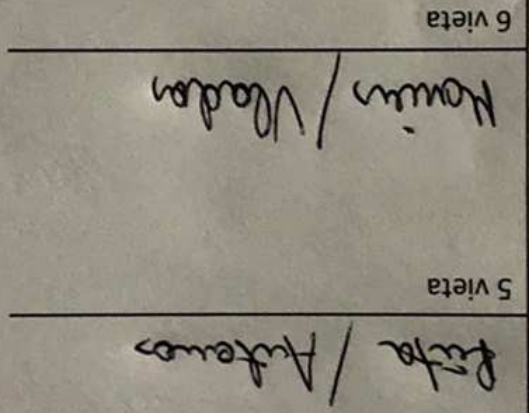 Rūta / Antanas
5 vieta
Marius / Vladas
6 vieta